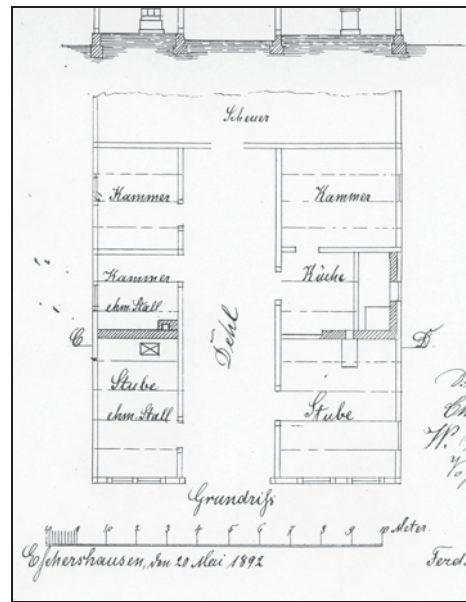 Scheuer
Kammer
Kammer
Kammer
ehm. Stall
Küche
C
Dehl
D
Stube
ehm. Stall
Stube
Grundriſs
10 2 3 4 5 6 7 8 9 10 Meter.
Eschershausen, den 20 Mai 1892
Ferd.